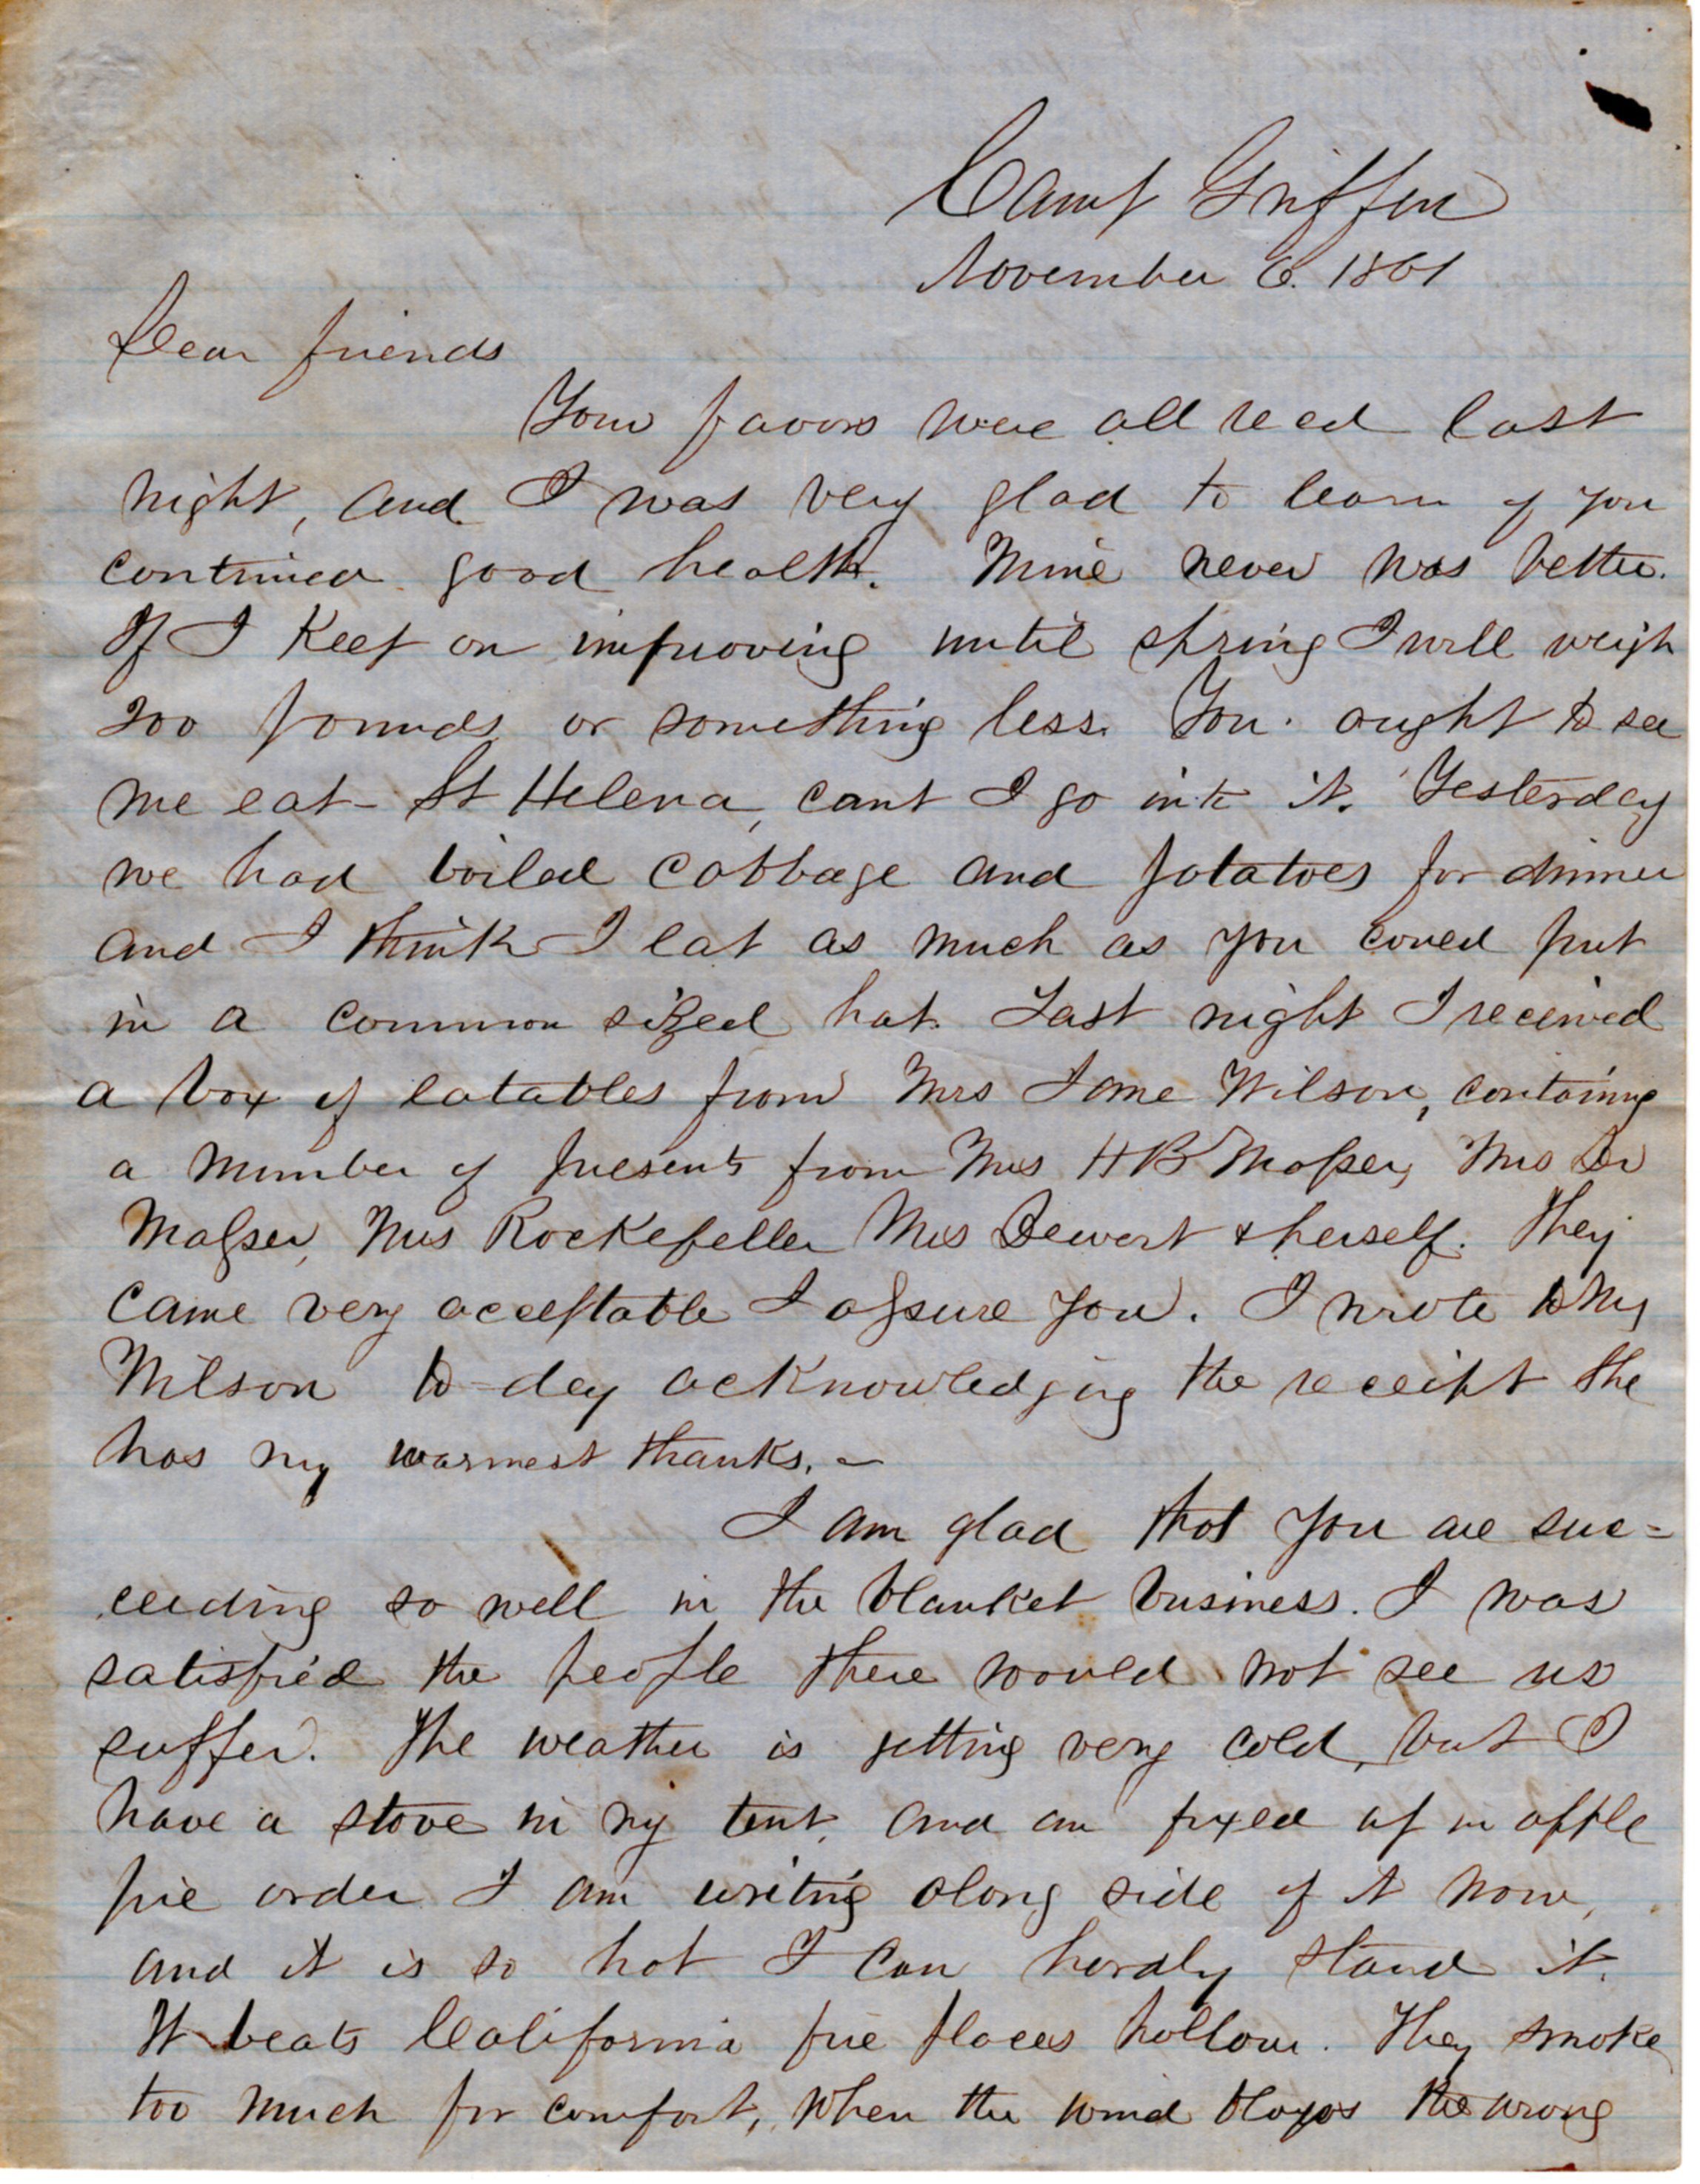 Camp Griffin
November 6. 1861
Dear friends
Your favors were all recd last
night, and I was very glad to learn of you
continued good health. Mine never was better.
If I Keep on improving until spring I will weigh
200 pounds or something less. You ought to see
me eat - St Helena, cant I go into it. Yesterday
we had boiled cabbage and potatoes for dinner
and I think I eat as much as you coued put
in a common sized hat. Last night I received
a box of eatables from Mrs Jane Wilson, containing
a number of presents from Mrs H B Masser, Mrs Dr
Masser, Mrs Rockefeller Mrs Dewart & herself. They
came very acceptable I assure you. I wrote to Mrs
Wilson to-day acknowledging the receipt She
has my warmest thanks. -
I am glad that you are suc=
ceeding so well in the blanket business. I was
satisfied the people there would not see us
suffer. The weather is getting very cold, but I
have a stove in my tent, and am fixed up in apple
pie order I am writing along side of it now,
and it is so hot I can hardly stand it.
It beats California fire places hollow. They smoke
too much for comfort, when the wind blows the wrong